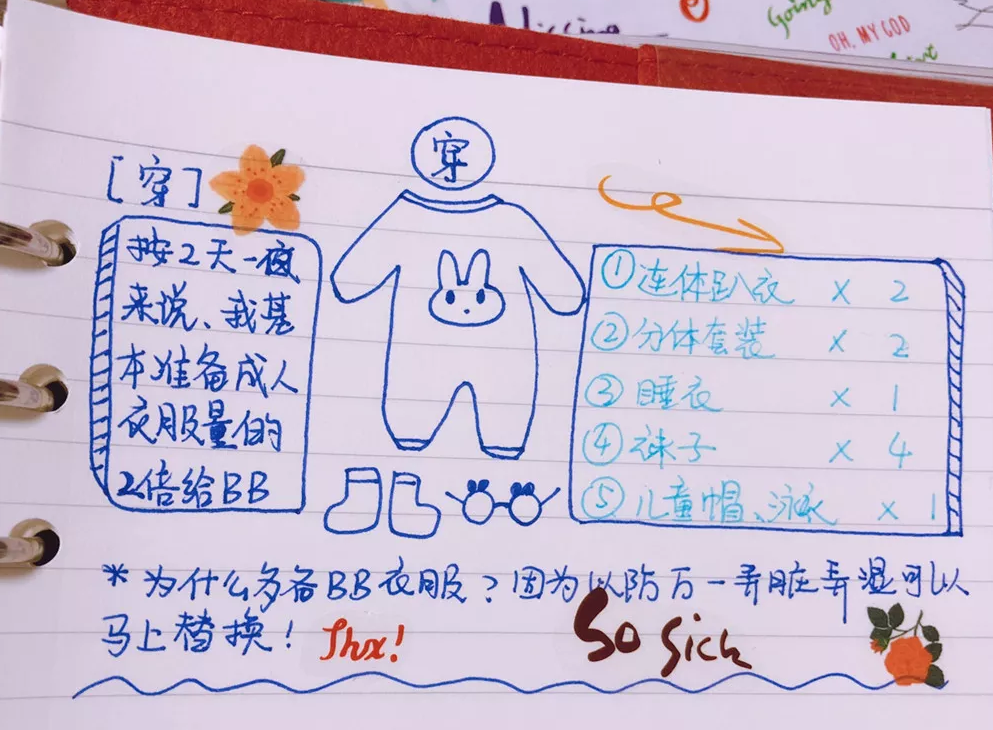 Missing
Going
OH, MY GOD
穿
[穿]
按2天一夜
来说、我基
本准备成人
衣服量的
2倍给BB
①连体趴衣 x 2
②分体套装 x 2
③睡衣 x 1
④袜子 x 4
⑤儿童帽、泳衣 x 1
*为什么多备BB衣服?因为以防万一弄脏弄湿可以
马上替换!
Thx!
So Sick